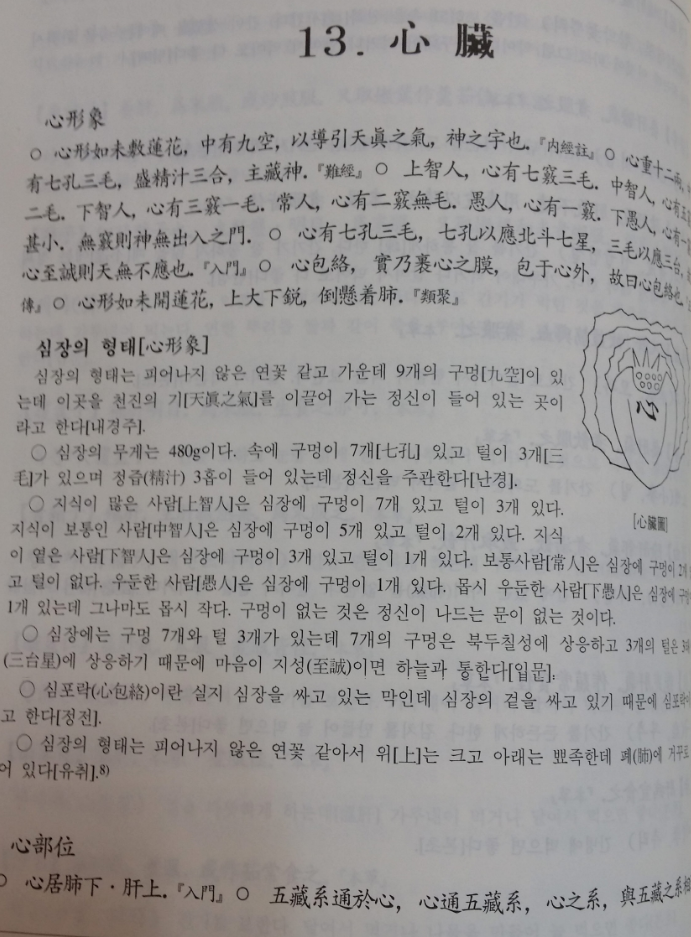 13. 心 臟
心形象
○ 心形如未敷蓮花, 中有九空, 以導引天眞之氣, 神之宇也.『內經註』 ○ 心重十二兩,
有七孔三毛, 盛精汁三合, 主藏神.『難經』 ○ 上智人, 心有七竅三毛. 中智人, 心有五
二毛. 下智人, 心有三竅一毛. 常人, 心有二竅無毛. 愚人, 心有一竅. 下愚人, 心有一
甚小. 無竅則神無出入之門. ○ 心有七孔三毛, 七孔以應北斗七星, 三毛以應三台,
心至誠則天無不應也.『入門』 ○ 心包絡, 實乃裹心之膜, 包于心外, 故曰心包絡也.
傳』 ○ 心形如未開蓮花, 上大下銳, 倒懸着肺.『類聚』
심장의 형태[心形象]
심장의 형태는 피어나지 않은 연꽃 같고 가운데 9개의 구멍[九空]이 있
는데 이곳을 천진의 기[天眞之氣]를 이끌어 가는 정신이 들어 있는 곳이
라고 한다[내경주].
○ 심장의 무게는 480g이다. 속에 구멍이 7개[七孔] 있고 털이 3개[三
毛]가 있으며 정즙(精汁) 3홉이 들어 있는데 정신을 주관한다[난경].
○ 지식이 많은 사람[上智人]은 심장에 구멍이 7개 있고 털이 3개 있다.
지식이 보통인 사람[中智人]은 심장에 구멍이 5개 있고 털이 2개 있다. 지식
이 옅은 사람[下智人]은 심장에 구멍이 3개 있고 털이 1개 있다. 보통사람[常人]은 심장에 구멍이 2개
고 털이 없다. 우둔한 사람[愚人]은 심장에 구멍이 1개 있다. 몹시 우둔한 사람[下愚人]은 심장에
1개 있는데 그나마도 몹시 작다. 구멍이 없는 것은 정신이 나드는 문이 없는 것이다.
○ 심장에는 구멍 7개와 털 3개가 있는데 7개의 구멍은 북두칠성에 상응하고 3개의 털은
(三台星)에 상응하기 때문에 마음이 지성(至誠)이면 하늘과 통한다[입문].
○ 심포락(心包絡)이란 실지 심장을 싸고 있는 막인데 심장의 겉을 싸고 있기 때문에 심포락
고 한다[정전].
○ 심장의 형태는 피어나지 않은 연꽃 같아서 위[上]는 크고 아래는 뾰족한데 폐(肺)에 거꾸로
어 있다[유취].8)
心
[心臟圖]
心部位
○ 心居肺下·肝上.『入門』 ○ 五藏系通於心, 心通五藏系, 心之系, 與五藏之系